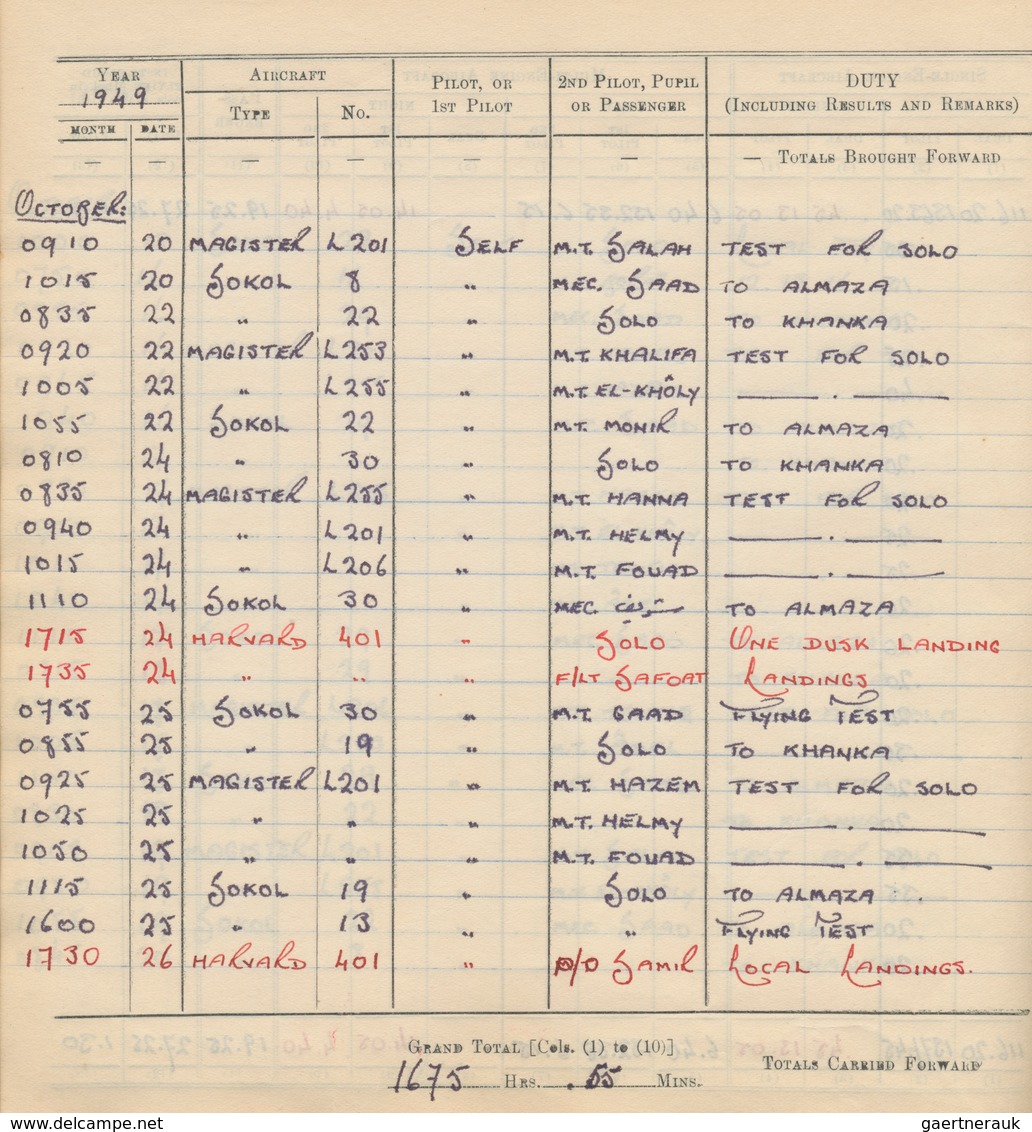 YEAR 1949 AIRCRAFT PILOT, OR 1ST PILOT 2ND PILOT, PUPIL OR PASSENGER DUTY (INCLUDING RESULTS AND REMARKS)
MONTH DATE TYPE NO.
— — — — — — — TOTALS BROUGHT FORWARD
OCTOBER:
0910 20 MAGISTER L201 SELF M.T. SALAH TEST FOR SOLO
1015 20 SOKOL 8 " MEC. SAAD TO ALMAZA
0835 22 " 22 " SOLO TO KHANKA
0920 22 MAGISTER L253 " M.T. KHALIFA TEST FOR SOLO
1005 22 " L255 " M.T. EL-KHÔLY — . —
1055 22 SOKOL 22 " M.T. MONIR TO ALMAZA
0810 24 " 30 " SOLO TO KHANKA
0835 24 MAGISTER L255 " M.T. HANNA TEST FOR SOLO
0940 24 " L201 " M.T. HELMY — . —
1015 24 " L206 " M.T. FOUAD — . —
1110 24 SOKOL 30 " MEC. TO ALMAZA
1715 24 HARVARD 401 " SOLO ONE DUSK LANDING
1735 24 " " " F/LT SAFOAT LANDINGS
0755 25 SOKOL 30 " M.T. GAAD FLYING TEST
0855 25 " 19 " SOLO TO KHANKA
0925 25 MAGISTER L201 " M.T. HAZEM TEST FOR SOLO
1025 25 " " " M.T. HELMY — . —
1050 25 " " " M.T. FOUAD — . —
1115 25 SOKOL 19 " SOLO TO ALMAZA .
1600 25 " 13 " " FLYING TEST
1730 26 HARVARD 401 " P/O SAMIR LOCAL LANDINGS.
GRAND TOTAL [Cols. (1) to (10)]
1675 HRS. .55 MINS. TOTALS CARRIED FORWARD
gaertnerauk